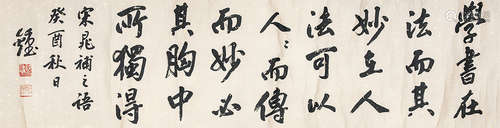 學書在
法而其
妙在人
法可以
人人而傳
而妙必
其胸中
所獨得
宋晁補之語
癸酉秋日